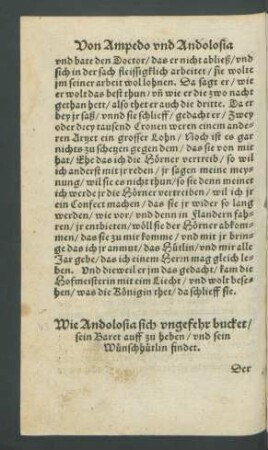 Von Ampedo vnd Andolosia
vnd bate den Doctor / das er nicht abließ / vnd
sich in der sach fleissigklich arbeitet / sie wolte
jm seiner arbeit wol lohnen. Da sagt er / wie
er wolt das best thun / vñ wie er die zwo nacht
gethan hett / also thet er auch die dritte. Da er
bey jr saß / vnnd sie schlieff / gedacht er / Zwey
oder drey tausend Cronen weren einem ande-
ren Artzet ein grosser Lohn / Noch ist es gar
nichts zu schetzen gegen dem / das sie von mir
hat / Ehe das ich die Hörner vertreib / so wil
ich anderst mit jr reden / jr sagen meine mey-
nung / wil sie es nicht thun / so sie denn meinet
ich werde jr die Hörner vertreiben / wil ich jr
ein Confect machen / das sie jr wider so lang
werden / wie vor / vnd denn in Flandern fah-
ren / jr entbieten / wöll sie der Hörner abkom-
men / das sie zu mir komme / vnd mit jr brin-
ge das ich jr anmut / das Hütlin / vnd mir alle
Jar gebe / das ich einem Herrn mag gleich le-
ben. Vnd dieweil er jm das gedacht / kam die
Hofmeisterin mit eim Liecht / vnd wolt bese-
hen / was die Königin thet / da schlieff sie.
Wie Andolosia sich vngefehr bucket /
sein Baret auff zu heben / vnd sein
Wünschhütlin findet.
Der